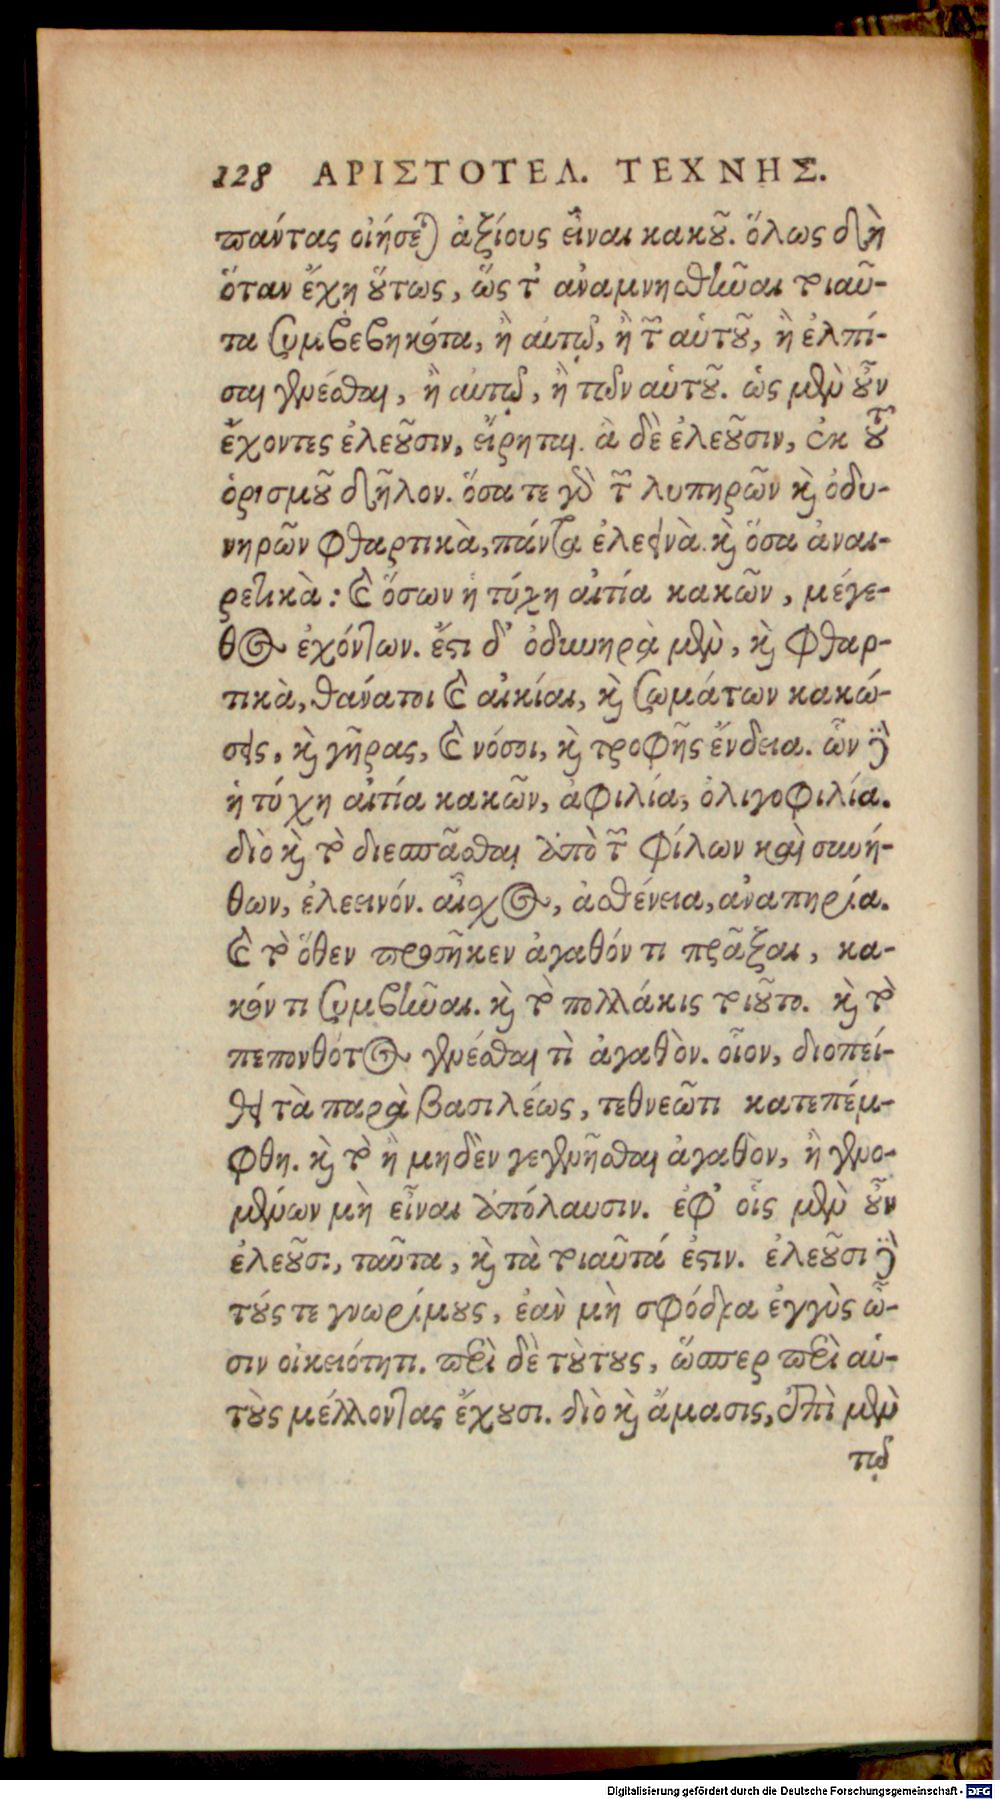 128 ΑΡΙΣΤΟΤΕΛ. ΤΕΧΝΗΣ.
πάντας οἰήσεται ἀξίους εἶναι κακοῦ. ὅλως δὴ
ὅταν ἔχῃ οὕτως, ὥς τ' ἀναμνησθῆναι τοιαῦ-
τα συμβεβηκότα, ἢ αὑτῷ, ἢ τῶν αὑτοῦ, ἢ ἐλπί-
σαι γενέσθαι, ἢ αὑτῷ, ἢ τῶν αὑτοῦ. ὡς μὲν οὖν
ἔχοντες ἐλεοῦσιν, εἴρηται. ἃ δὲ ἐλεοῦσιν, ἐκ τοῦ
ὁρισμοῦ δῆλον. ὅσα τε γὰρ τῶν λυπηρῶν καὶ ὀδυ-
νηρῶν φθαρτικὰ, πάντα ἐλεεινὰ. καὶ ὅσα ἀναι-
ρετικὰ: καὶ ὅσων ἡ τύχη αἰτία κακῶν, μέγε-
θος ἐχόντων. ἔστι δ' ὀδυνηρὰ μὲν, καὶ φθαρ-
τικὰ, θάνατοι καὶ αἰκίαι, καὶ σωμάτων κακώ-
σεις, καὶ γῆρας, καὶ νόσοι, καὶ τροφῆς ἔνδεια. ὧν δὲ
ἡ τύχη αἰτία κακῶν, ἀφιλία, ὀλιγοφιλία.
διὸ καὶ τὸ διεσπᾶσθαι ἀπὸ τῶν φίλων καὶ συνή-
θων, ἐλεεινόν. αἶσχος, ἀσθένεια, ἀναπηρία.
καὶ τὸ ὅθεν προσῆκεν ἀγαθόν τι πρᾶξαι, κα-
κόν τι συμβῆναι. καὶ τὸ πολλάκις τοιοῦτο. καὶ τὸ
πεπονθότος γενέσθαι τὶ ἀγαθὸν. οἷον, διοπεί-
θει τὰ παρὰ βασιλέως, τεθνεῶτι κατεπέμ-
φθη. καὶ τὸ ἢ μηδὲν γεγενῆσθαι ἀγαθὸν, ἢ γενο-
μένων μὴ εἶναι ἀπόλαυσιν. ἐφ' οἷς μὲν οὖν
ἐλεοῦσι, ταῦτα, καὶ τὰ τοιαῦτά ἐστιν. ἐλεοῦσι δὲ
τούς τε γνωρίμους, ἐὰν μὴ σφόδρα ἐγγὺς ὦ-
σιν οἰκειότητι. περὶ δὲ τούτους, ὥσπερ περὶ αὑ-
τοὺς μέλλοντας ἔχουσι. διὸ καὶ ἄμασις, ἐπὶ μὲν
τῷ
Digitalisierung gefördert durch die Deutsche Forschungsgemeinschaft - DFG